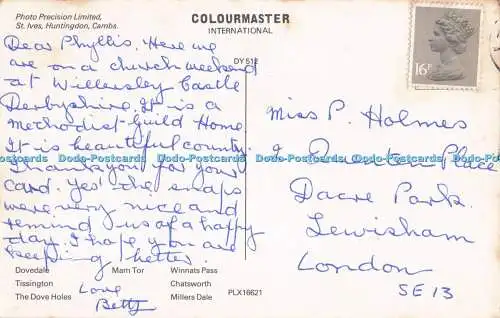 Photo Precision Limited,
St. Ives, Huntingdon, Cambs.
COLOURMASTER
INTERNATIONAL
DY 512
16P
Dear Phyllis. Here we
are on a church weekend
at Willersley Castle
Derbyshire. It is a
Methodist Guild Home.
It is beautiful country.
Thank you for your
card. Yes! the snaps
were very nice and
remind us of a happy
day. I hope you are
keeping better.
Love
Betty
Miss P. Holmes
Quenton Place
Dacre Park.
Lewisham
London
SE 13
Dovedale Mam Tor Winnats Pass
Tissington Chatsworth
The Dove Holes Millers Dale PLX16621
Dodo-Postcards Dodo-Postcards Dodo-Postcards Dodo-Postcards Dodo-Postcards